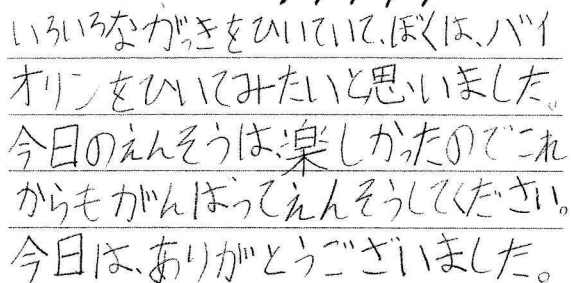 いろいろながっきをひいていて、ぼくは、バイ
オリンをひいてみたいと思いました。
今日のえんそうは、楽しかったのでこれ
からもがんばってえんそうしてください。
今日は、ありがとうございました。